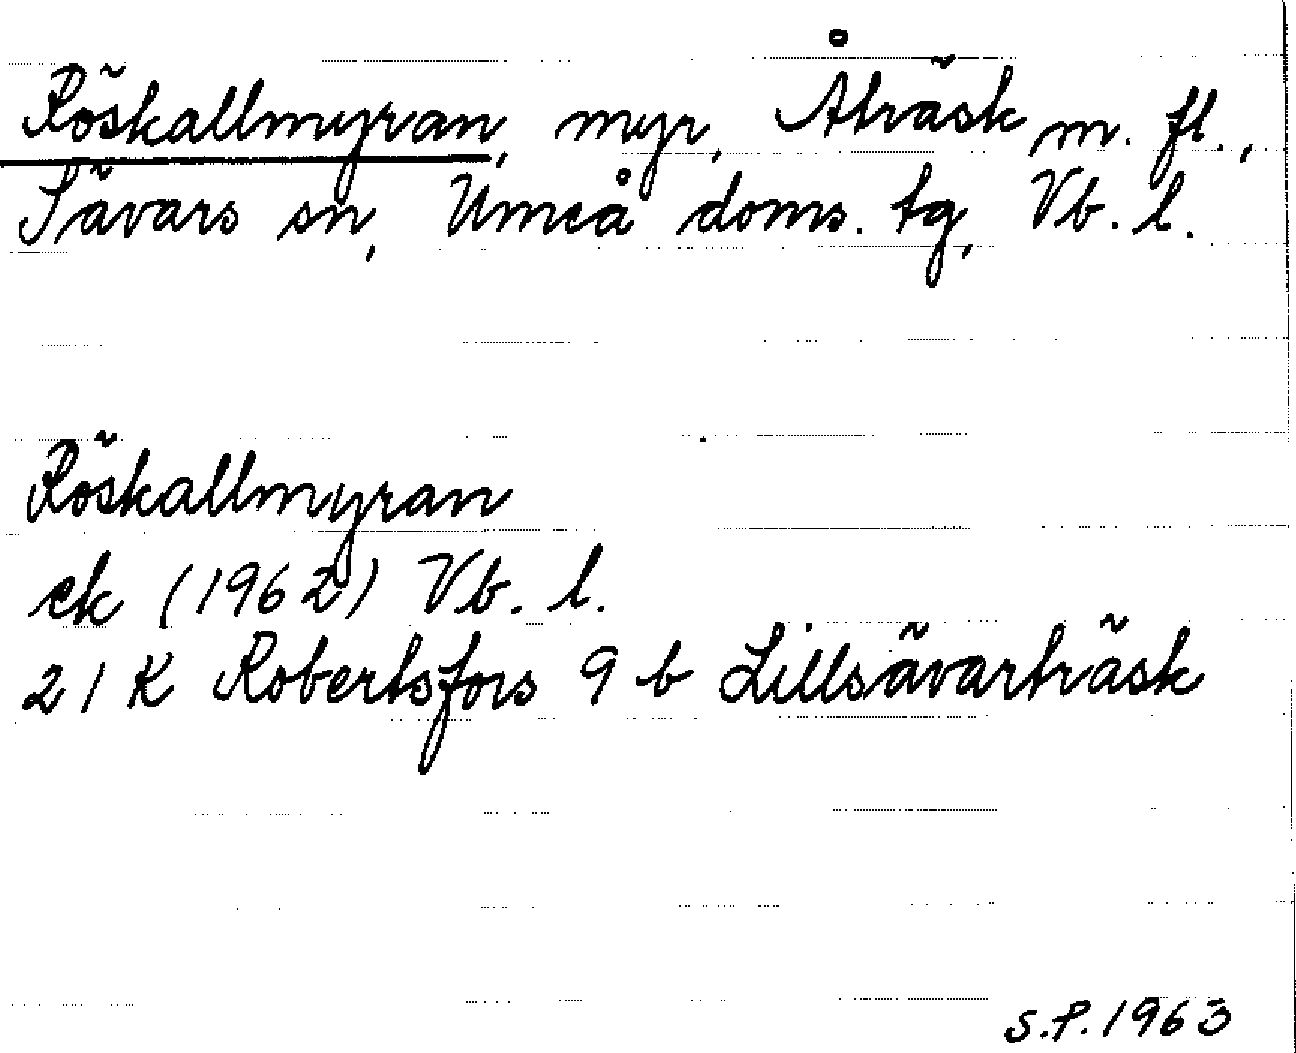 Röskallmyran, myr, Åträsk m. fl.,
Sävars sn, Umeå doms. tg, Vb. l.
Röskallmyran
ek (1962) Vb. l.
21 K Robertsfors 9 b Lillsävarträsk
S.P. 1963